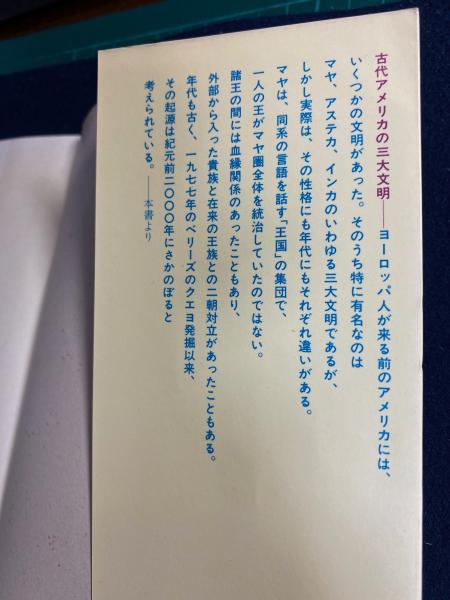 古代アメリカの三大文明——ヨーロッパ人が来る前のアメリカには、
いくつかの文明があった。そのうち特に有名なのは
マヤ、アステカ、インカのいわゆる三大文明であるが、
しかし実際は、その性格にも年代にもそれぞれ違いがある。
マヤは、同系の言語を話す「王国」の集団で、
一人の王がマヤ圏全体を統治していたのではない。
諸王の間には血縁関係のあったこともあり、
外部から入った貴族と在来の王族との二朝対立があったこともある。
年代も古く、一九七七年のベリーズのクエヨ発掘以来、
その起源は紀元前二〇〇〇年にさかのぼると
考えられている。——本書より